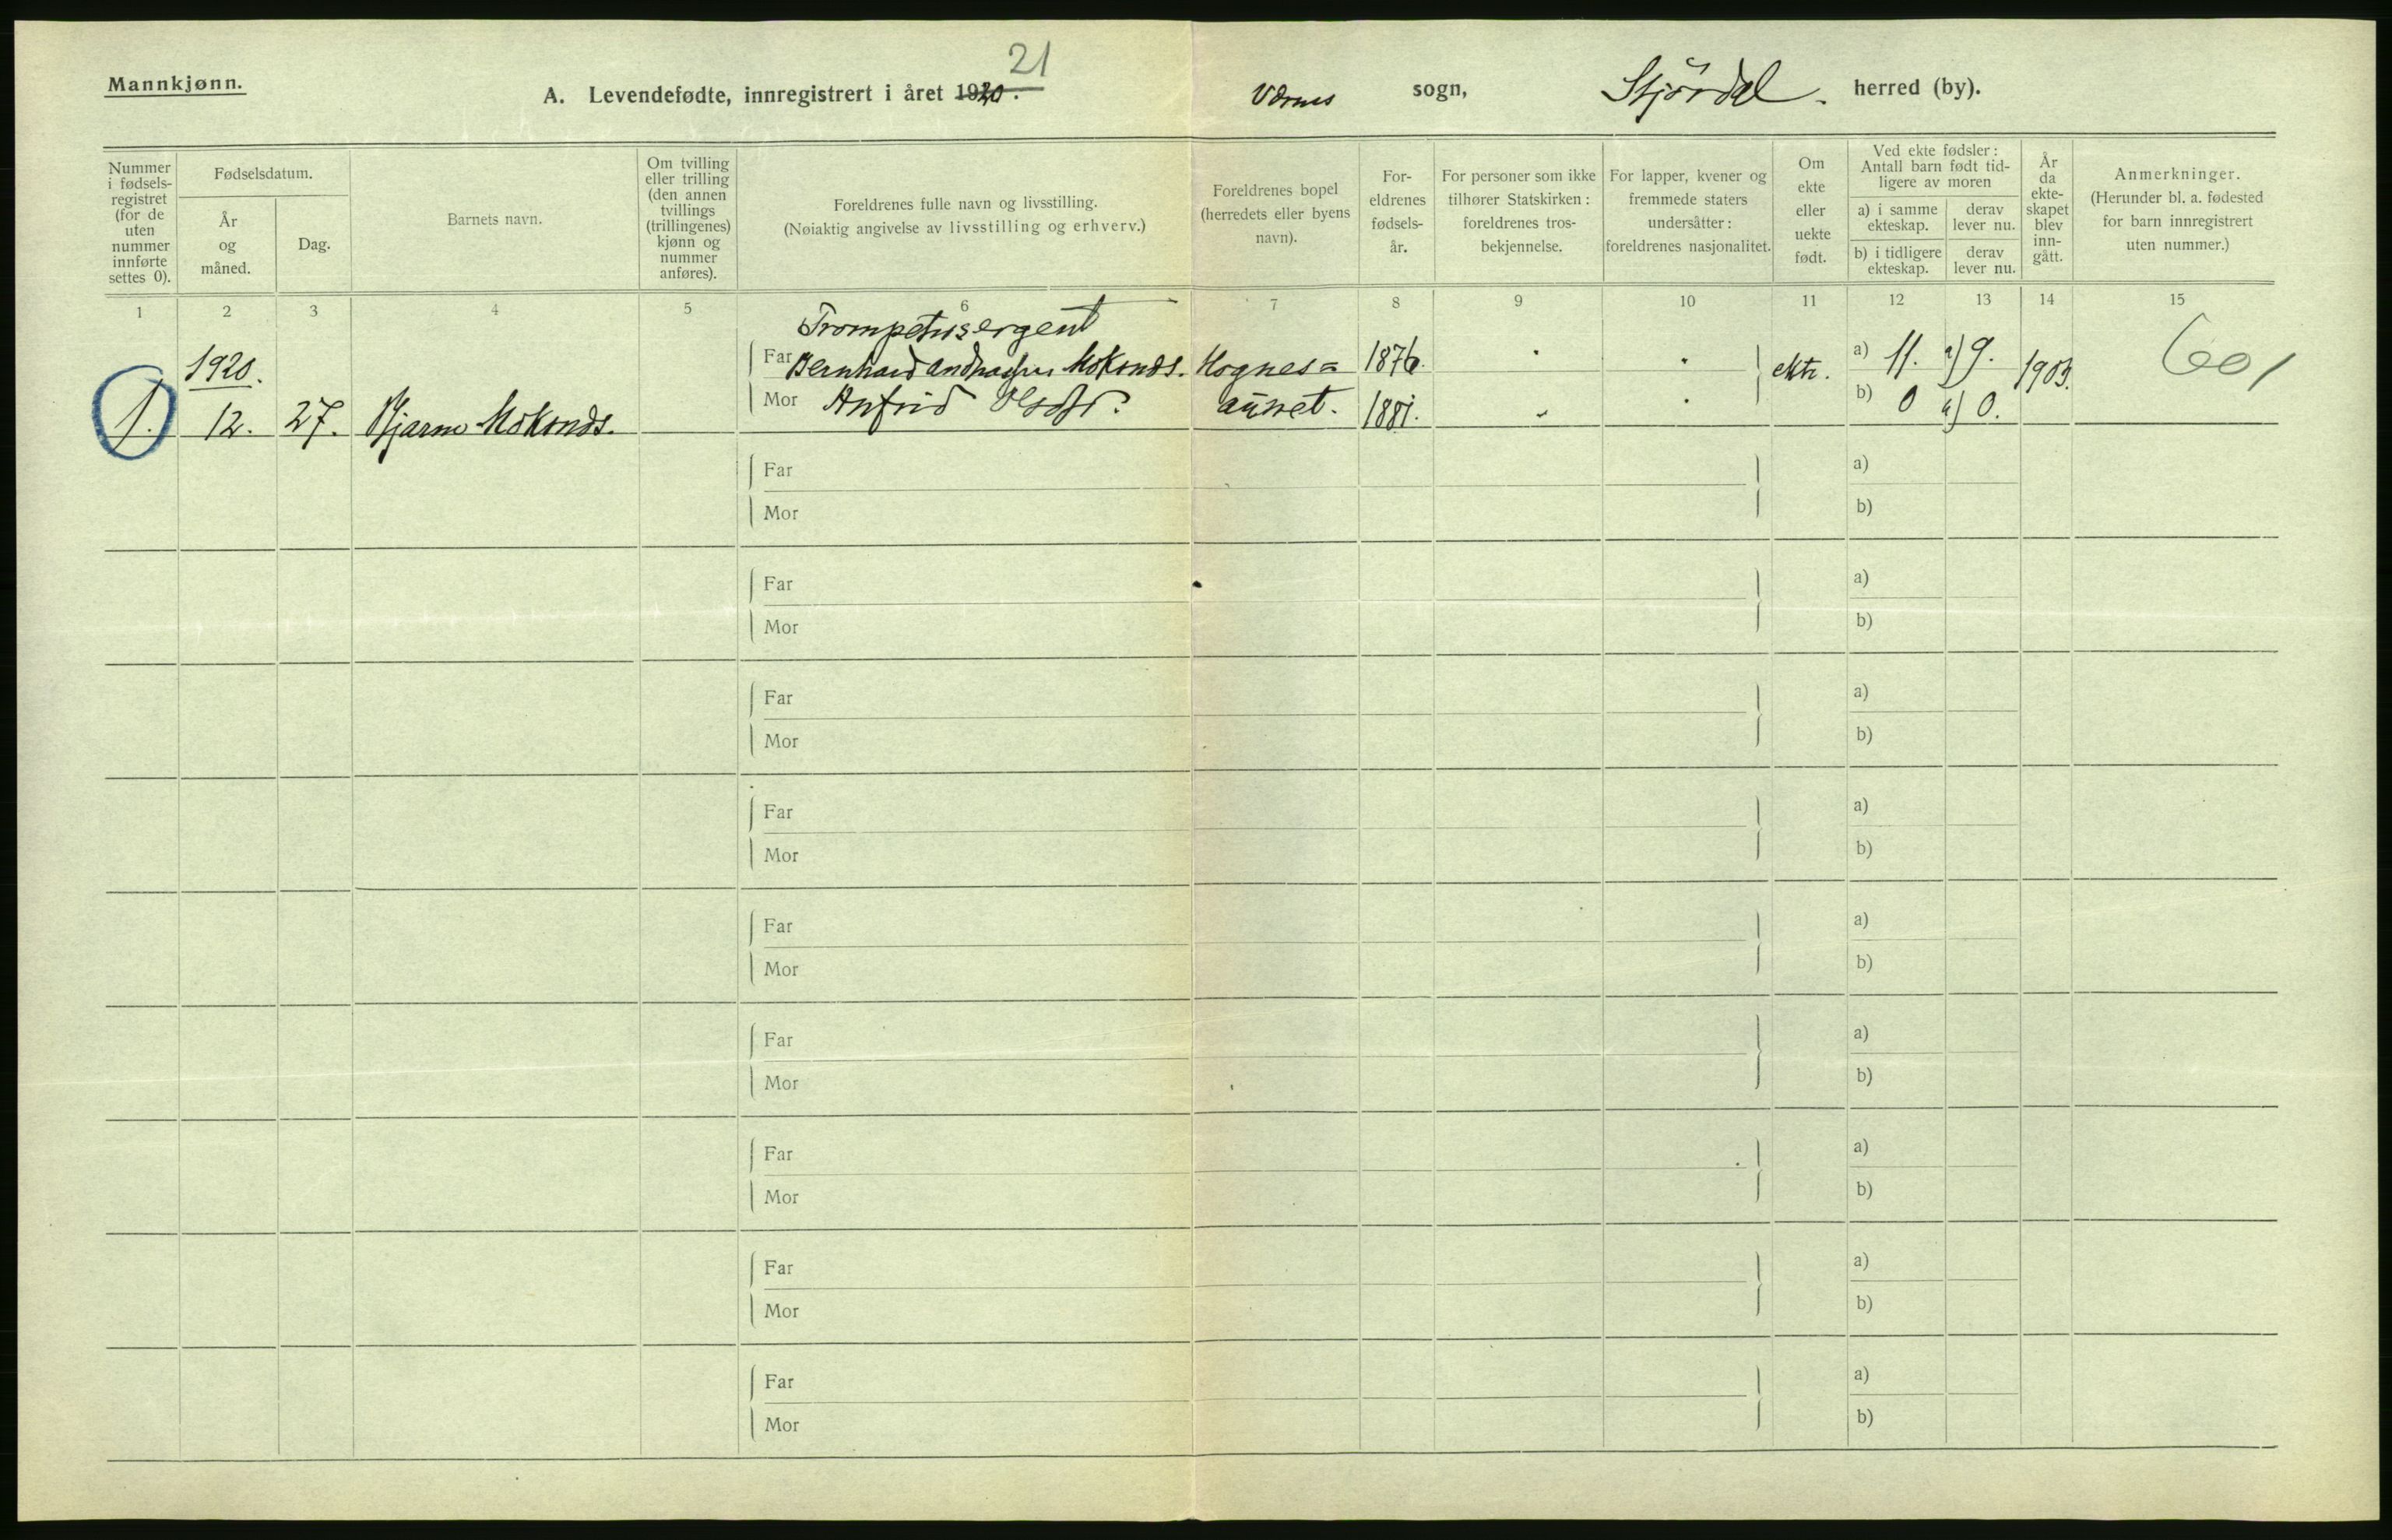 Mannkjønn.
A. Levendefødte, innregistrert i året 1920. 21
Værnes sogn, Stjørdal. herred (by).
Nummer i fødsels-registret (for de uten nummer innførte settes 0).
Fødselsdatum.
År og måned.
Dag.
Barnets navn.
Om tvilling eller trilling (den annen tvillings (trillingenes) kjønn og nummer anføres).
Foreldrenes fulle navn og livsstilling.
(Nøiaktig angivelse av livsstilling og erhverv.)
Foreldrenes bopel (herredets eller byens navn).
For-eldrenes fødsels-år.
For personer som ikke tilhører Statskirken: foreldrenes tros-bekjennelse.
For lapper, kvener og fremmede staters undersåtter: foreldrenes nasjonalitet.
Om ekte eller uekte født.
Ved ekte fødsler: Antall barn født tid-ligere av moren
a) i samme ekteskap.
derav lever nu.
b) i tidligere ekteskap.
derav lever nu.
År da ekte-skapet blev inn-gått.
Anmerkninger.
(Herunder bl. a. fødested for barn innregistrert uten nummer.)
1 2 3 4 5 6 7 8 9 10 11 12 13 14 15
Trompetersergent
1920. Far Bernhard Moksnes. Hognes= 1876. ekte. a) 11. a) 9. 1903. 601
1. 12. 27. Bjarne Moksnes. Mor aunet. 1881. b) 0 b) 0.
Far a)
Mor b)
Far a)
Mor b)
Far a)
Mor b)
Far a)
Mor b)
Far a)
Mor b)
Far a)
Mor b)
Far a)
Mor b)
Far a)
Mor b)
Far a)
Mor b)